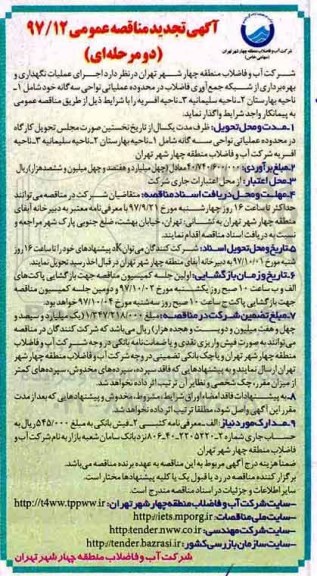 آگهی تجدید مناقصه عمومی ۹۷/۱۲
(دو مرحله‌ای)
شرکت آب و فاضلاب منطقه چهار شهر تهران
(سهامی خاص)
شرکت آب و فاضلاب منطقه چهار شهر تهران در نظر دارد اجرای عملیات نگهداری و
بهره‌برداری از شبکه جمع‌آوری فاضلاب در محدوده عملیاتی نواحی سه گانه خود شامل ۱-
ناحیه بهارستان ۲-ناحیه سلیمانیه ۳-ناحیه افسریه را با شرایط ذیل از طریق مناقصه عمومی
به پیمانکار واجد شرایط واگذار نماید.
۱-مدت و محل تحویل: ظرف مدت یکسال از تاریخ نخستین صورت مجلس تحویل کارگاه
در محدوده عملیاتی نواحی سه گانه شامل ۱-ناحیه بهارستان ۲-ناحیه سلیمانیه ۳-ناحیه
افسریه شرکت آب و فاضلاب منطقه چهار شهر تهران
۲-مبلغ برآوردی: ۴۰/۷۴۰/۶۰۰/۰۰۰ معادل (چهل میلیارد و هفتصد و چهل میلیون و ششصد هزار) ریال
۳-محل اعتبار: از محل اعتبارات جاری شرکت
۴-مهلت و محل دریافت اسناد مناقصه: متقاضیان شرکت در مناقصه می‌توانند
حداکثر تا ساعت ۱۶ روز چهارشنبه مورخ ۹۷/۹/۲۱ با معرفی‌نامه معتبر به دبیرخانه آبفای
منطقه چهار شهر تهران به نشانی: تهران، خیابان بهشت، ضلع جنوبی پارک شهر مراجعه و
نسبت به دریافت اسناد مناقصه اقدام نمایند.
۵-تاریخ و محل تحویل اسناد: شرکت کنندگان می‌توانند پیشنهادهای خود را تا ساعت ۱۶ روز
شنبه مورخ ۹۷/۱۰/۰۱ به دبیرخانه آبفای منطقه چهار شهر تهران در قبال اخذ رسید تحویل نمایند.
۶-تاریخ و زمان بازگشایی: اولین جلسه کمیسیون مناقصه جهت بازگشایی پاکت‌های
الف و ب ساعت ۱۰ صبح روز یکشنبه مورخ ۹۷/۱۰/۰۲ و دومین جلسه کمیسیون مناقصه
جهت بازگشایی پاکت ج ساعت ۱۰ صبح روز سه‌شنبه مورخ ۹۷/۱۰/۰۴ خواهد بود.
۷-مبلغ تضمین شرکت در مناقصه: مبلغ ۱/۳۴۷/۲۱۸/۰۰۰ (یک میلیارد و سیصد و
چهل و هفت میلیون و دویست و هجده هزار) ریال می‌باشد که شرکت کنندگان در مناقصه
می‌توانند به صورت فیش واریزی نقدی و یا ضمانت‌نامه بانکی در وجه شرکت آب و فاضلاب
منطقه چهار شهر تهران و یا چک بانکی تضمینی در وجه شرکت آب و فاضلاب منطقه چهار شهر
تهران ارسال نمایند و به پیشنهادهایی که فاقد سپرده، سپرده‌های مخدوش، سپرده‌های کمتر
از میزان مقرر، چک شخصی و نظایر آن ترتیب اثر داده نخواهد شد.
۸-به پیشنهادات فاقد امضاء اوراق شرایط، مشروط، مخدوش و پیشنهادهایی که بعد از مدت
مقرر این آگهی واصل شود، مطلقا ترتیب اثر داده نخواهد شد.
۹-مدارک مورد نیاز: الف-معرفی نامه کتبی ۲-فیش بانکی به مبلغ ۵۴۵/۰۰۰ ریال به
حساب جاری شماره نزد بانک سامان شعبه بازار به نام شرکت آب و
فاضلاب منطقه چهار شهر تهران
ضمنا هزینه درج آگهی مربوط به این مناقصه به عهده برنده مناقصه می‌باشد.
برگزار کننده مناقصه در رد یا قبول یک یا کلیه پیشنهادها مختار است.
سایر اطلاعات و جزئیات در اسناد مناقصه مندرج است.
-سایت شرکت آب و فاضلاب منطقه چهار شهر تهران: http://t4ww.tppww.ir
-سایت ملی مناقصات: http://iets.mporg.ir
-سایت شرکت مهندسی: http://tender.nww.co.ir
-سایت سازمان بازرسی کشور: http://tender.bazrasi.ir
شرکت آب و فاضلاب منطقه چهار شهر تهران